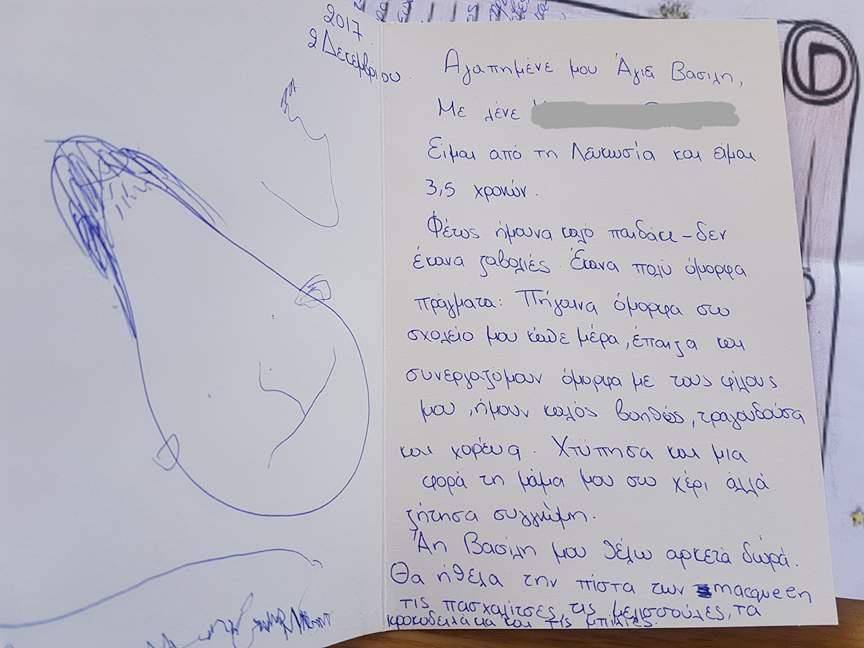 2017
2 Δεκεμβρίου.
Αγαπημένε μου Άγιε Βασίλη,
Με λένε
Είμαι από τη Λευκωσία και είμαι
3,5 χρονών.
Φέτος ήμουνα καλό παιδάκι - δεν
έκανα ζαβολιές. Έκανα πολύ όμορφα
πράγματα: Πήγαινα όμορφα στο
σχολείο μου κάθε μέρα, έπαιζα και
συνεργαζόμουν όμορφα με τους φίλους
μου, ήμουν καλός βοηθός, τραγουδούσα
και χόρευα. Χτύπησα και μια
φορά τη μάμα μου στο χέρι αλλά
ζήτησα συγγνώμη.
Άη Βασίλη μου θέλω αρκετά δώρα.
Θα ήθελα την πίστα των macqueen
τις πασχαλίτσες, τις μελισσούλες, τα
κροκοδειλάκια και τις μπίλιες.